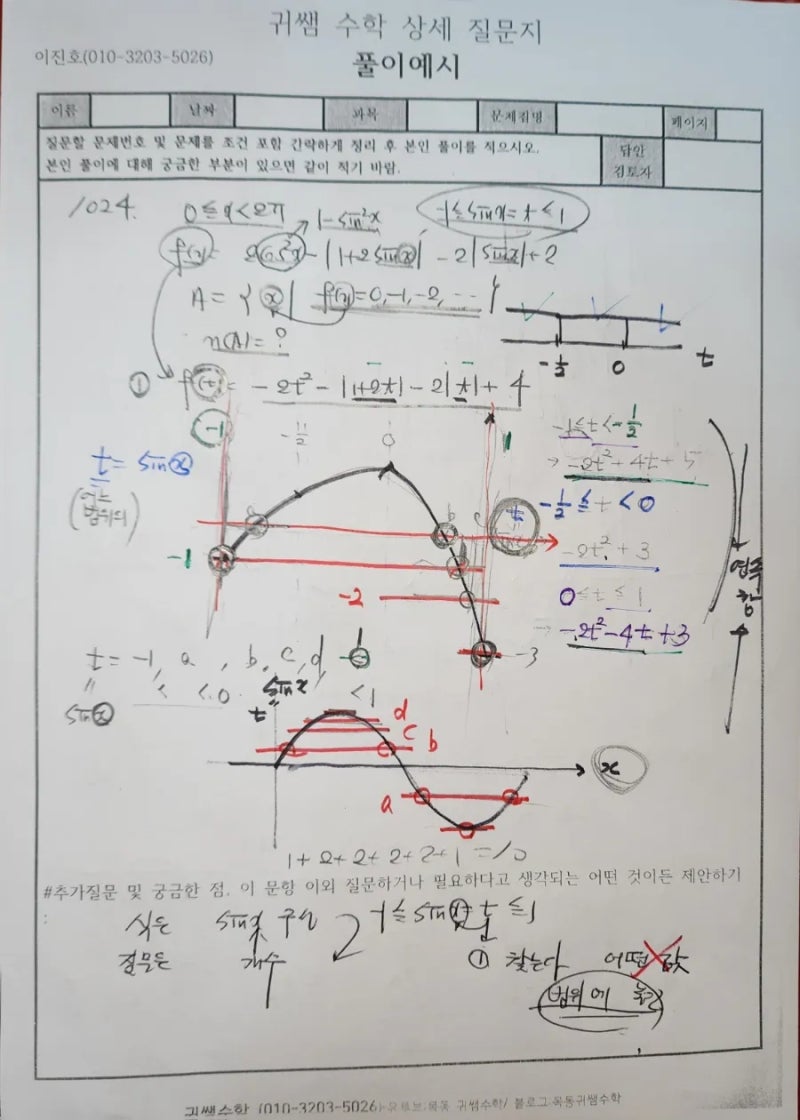 귀쌤 수학 상세 질문지
이진호(010-3203-5026)
풀이예시
이름 날짜 과목 문제집명 페이지
질문할 문제번호 및 문제를 조건 포함 간략하게 정리 후 본인 풀이를 적으시오.
본인 풀이에 대해 궁금한 부분이 있으면 같이 적기 바람.
답안
검토자
1024. 0≤x<2π 1-sin²x -1≤sinx=t≤1
f(x)= 2cos²x-|1+2sinx|-2|sinx|+2
A={x| f(x)=0,-1,-2,…}
n(A)=?
-1/2 0 t
① f(t)= -2t²-|1+2t|-2|t|+4
-1 -1/2 0 1
-1≤t<-1/2
t=sinx
→ -2t²+4t+5
(어느
범위의)
-1/2≤t<0
a b c t
-2t²+3
-1
0≤t≤1
-2
→ -2t²-4t+3
-3
t= -1, a, b, c, d, 1
sinx < <0 sinx <1
t
d
c
b
x
a
1+2+2+2+2+1=10
#추가질문 및 궁금한 점. 이 문항 이외 질문하거나 필요하다고 생각되는 어떤 것이든 제안하기
:
식은 sinx -1≤sinx=t≤1
질문은 개수 ① 찾는다 어떤 값
범위에
귀쌤수학 (010-3203-5026)-유튜브:목동 귀쌤수학/ 블로그:목동귀쌤수학